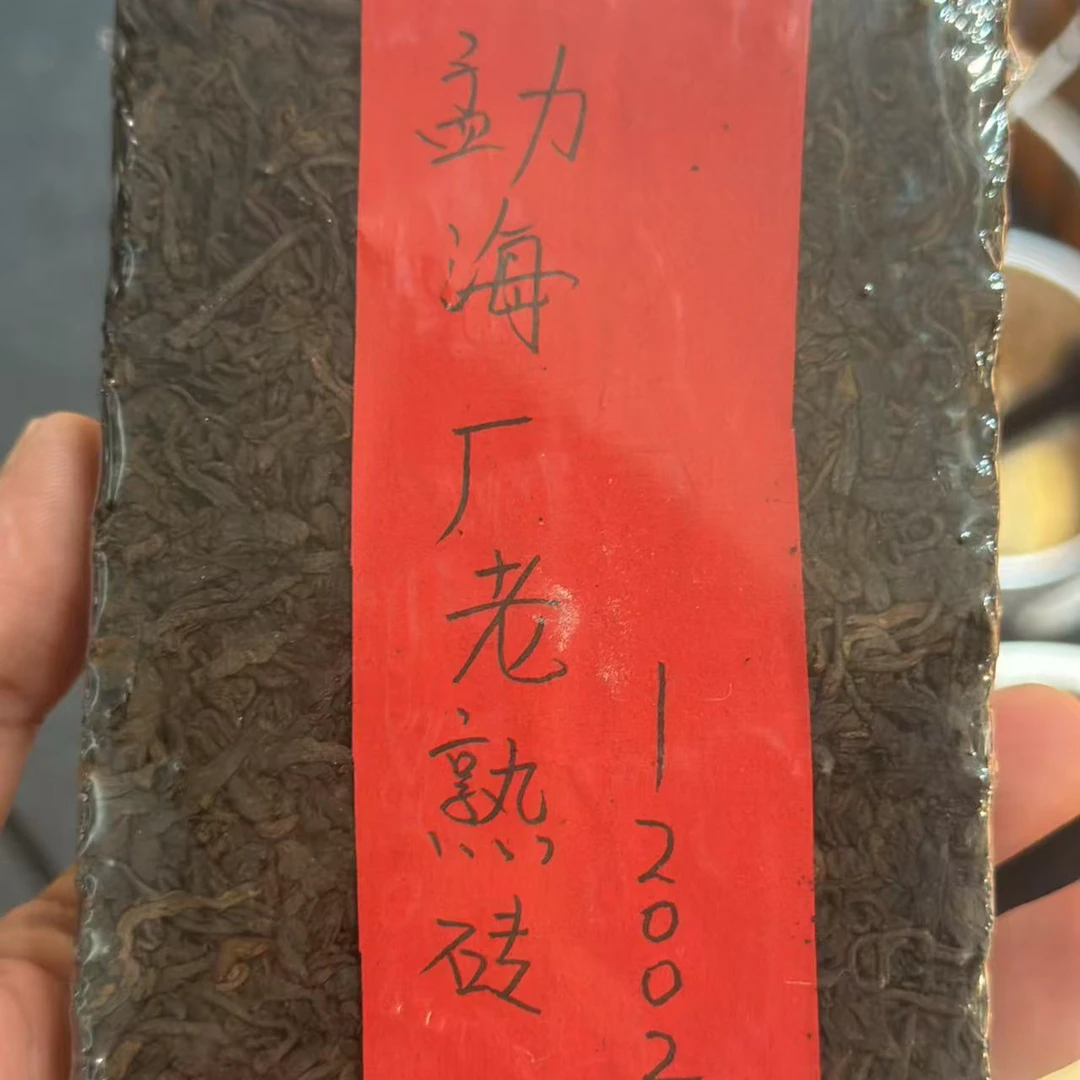 勐海厂老熟砖
—2002